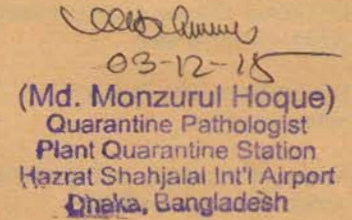 03-12-15
(Md. Monzurul Hoque)
Quarantine Pathologist
Plant Quarantine Station
Hazrat Shahjalal Int'l Airport
Dhaka, Bangladesh